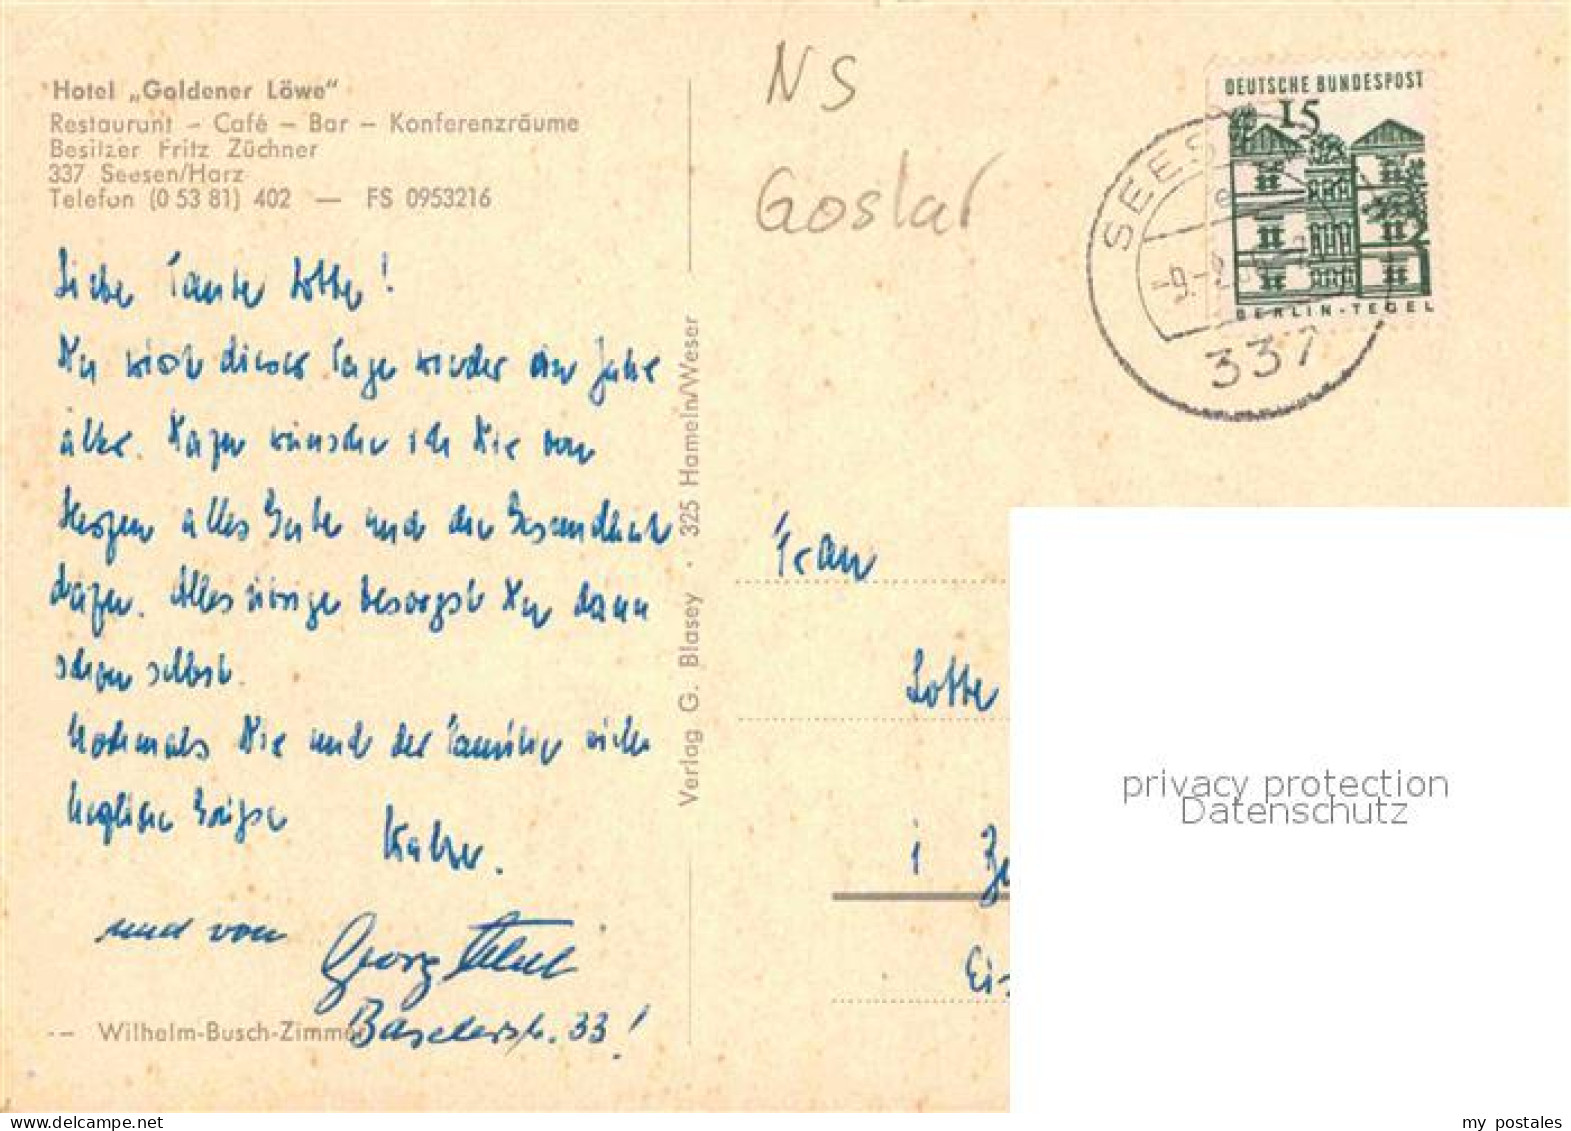 Hotel „Goldener Löwe“
Restaurant – Café – Bar – Konferenzräume
Besitzer Fritz Züchner
337 Seesen/Harz
Telefon (0 53 81) 402 — FS 0953216
Liebe Tante Lotte!
Du wirst dieser Tage wieder ein Jahr
älter. Dazu wünsche ich Dir von
Herzen alles Gute und die Gesundheit
dazu. Alles übrige besorgst Du dann
schon selbst.
Nochmals Dir und der Familie viele
herzliche Grüße
und von Georg
Baselerstr. 33!
-- Wilhelm-Busch-Zimmer
Verlag G. Blasey · 325 Hameln/Weser
NS
Goslar
DEUTSCHE BUNDESPOST
15
BERLIN-TEGEL
SEESEN
337
Frau
Lotte
i
privacy protection
Datenschutz
my postales